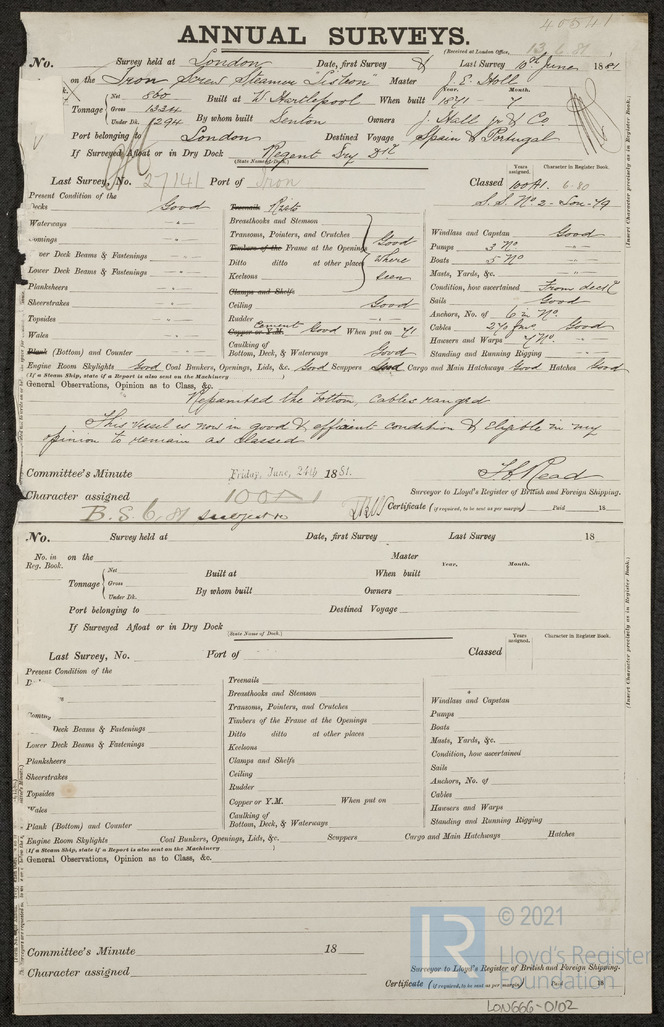 40541
ANNUAL SURVEYS.
(Received at London Office, 13.6.81
No. Survey held at London Date, first Survey & Last Survey 10th June 1881
on the Iron Screw Steamer "Lisbon" Master J. E. Holl
Tonnage { Net 860 Gross 1334 Under Dk. 1294 Built at W Hartlepool When built Year, 1871 Month. 7
By whom built Denton Owners J. Hall jr & Co
Port belonging to London Destined Voyage Spain & Portugal
If Surveyed Afloat or in Dry Dock Regent Dry Dck
(State Name of Dock.)
Last Survey, No. 27141 Port of Iron Classed Years assigned. 100A1. Character in Register Book. 6-80
S.S. No 2 - Lon - 79
(Insert Character precisely as in Register Book.)
Present Condition of the
Decks Good
Waterways "
Comings "
Upper Deck Beams & Fastenings "
Lower Deck Beams & Fastenings "
Planksheers "
Sheerstrakes "
Topsides "
Wales "
Plank (Bottom) and Counter "
Treenails Rivets
Breasthooks and Stemson
Transoms, Pointers, and Crutches
Timbers of the Frame at the Openings
Ditto ditto at other places
Keelsons
Good where seen
Clamps and Shelfs
Ceiling Good
Rudder "
Copper or Y.M. Cement Good When put on 71
Caulking of Bottom, Deck, & Waterways Good
Windlass and Capstan Good
Pumps 3 No "
Boats 5 No "
Masts, Yards, &c. "
Condition, how ascertained From deck
Sails Good
Anchors, No. of 6 in No.
Cables 270 fms Good
Hawsers and Warps 7 No.
Standing and Running Rigging "
Engine Room Skylights Good Coal Bunkers, Openings, Lids, &c. Good Scuppers Good Cargo and Main Hatchways Good Hatches Good
(If a Steam Ship, state if a Report is also sent on the Machinery )
General Observations, Opinion as to Class, &c.
Repainted the bottom, cables ranged
This vessel is now in good & efficient condition & eligible in my
opinion to remain as classed
Committee's Minute Friday, June, 24th 1881.
Character assigned 100A1
B.S. 6.81 subject to
Surveyor to Lloyd's Register of British and Foreign Shipping.
Certificate (if required, to be sent as per margin) Paid 18
No. Survey held at Date, first Survey Last Survey 18
No. in Reg. Book. on the Master
Tonnage { Net Gross Under Dk. Built at When built Year, Month.
By whom built Owners
Port belonging to Destined Voyage
If Surveyed Afloat or in Dry Dock
(State Name of Dock.)
Last Survey, No. Port of Classed Years assigned. Character in Register Book.
(Insert Character precisely as in Register Book.)
Present Condition of the
D
Coming
Deck Beams & Fastenings
Lower Deck Beams & Fastenings
Planksheers
Sheerstrakes
Topsides
Wales
Plank (Bottom) and Counter
Treenails
Breasthooks and Stemson
Transoms, Pointers, and Crutches
Timbers of the Frame at the Openings
Ditto ditto at other places
Keelsons
Clamps and Shelfs
Ceiling
Rudder
Copper or Y.M. When put on
Caulking of Bottom, Deck, & Waterways
Windlass and Capstan
Pumps
Boats
Masts, Yards, &c.
Condition, how ascertained
Sails
Anchors, No. of
Cables
Hawsers and Warps
Standing and Running Rigging
Engine Room Skylights Coal Bunkers, Openings, Lids, &c. Scuppers Cargo and Main Hatchways Hatches
(If a Steam Ship, state if a Report is also sent on the Machinery )
General Observations, Opinion as to Class, &c.
Committee's Minute 18
Character assigned
Surveyor to Lloyd's Register of British and Foreign Shipping.
Certificate (if required, to be sent as per margin) Paid 18
LR © 2021
Lloyd's Register
Foundation
LON666-0102